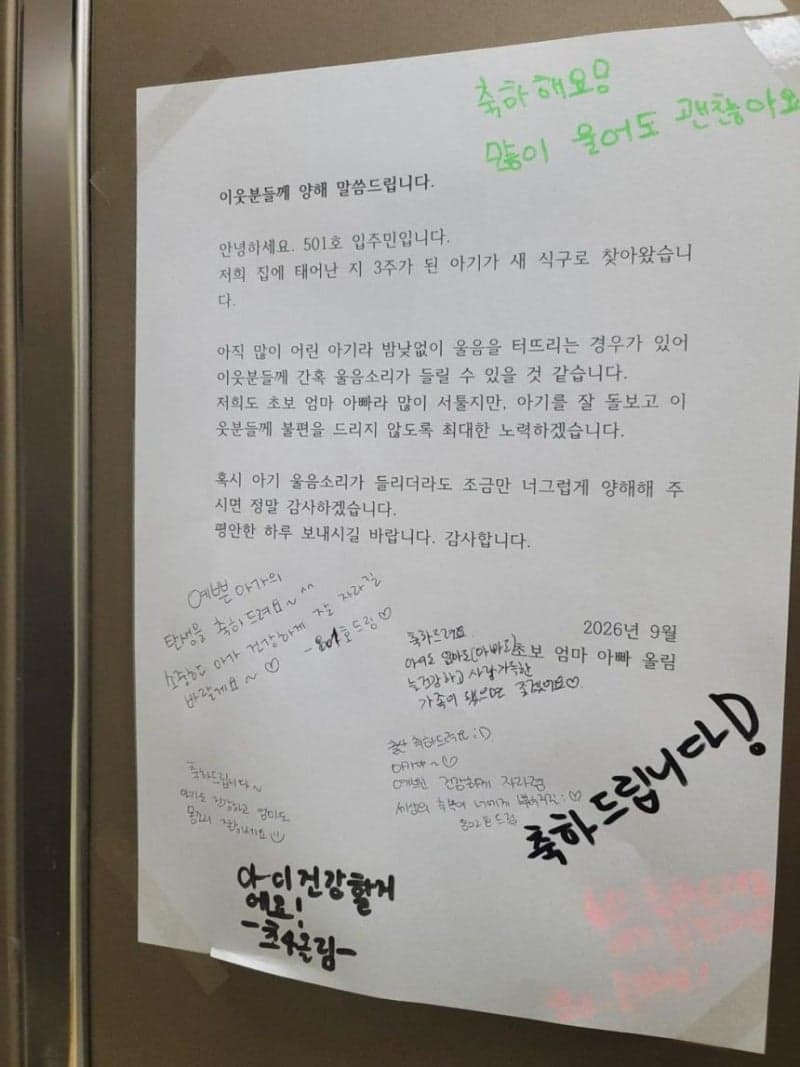 축하해요!
많이 울어도 괜찮아요
이웃분들께 양해 말씀드립니다.
안녕하세요. 501호 입주민입니다.
저희 집에 태어난 지 3주가 된 아기가 새 식구로 찾아왔습니
다.
아직 많이 어린 아기라 밤낮없이 울음을 터뜨리는 경우가 있어
이웃분들께 간혹 울음소리가 들릴 수 있을 것 같습니다.
저희도 초보 엄마 아빠라 많이 서툴지만, 아기를 잘 돌보고 이
웃분들께 불편을 드리지 않도록 최대한 노력하겠습니다.
혹시 아기 울음소리가 들리더라도 조금만 너그럽게 양해해 주
시면 정말 감사하겠습니다.
평안한 하루 보내시길 바랍니다. 감사합니다.
예쁜 아가의
탄생을 축하드려요~^^
소중한 아가 건강하게 자라길
바랄게요~♡
2026년 9월
초보 엄마 아빠 올림
축하드려요.
늘 건강하고 사랑가득한
가족이 됐으면 좋겠어요♡
출산 축하드려요 :D
아가야~♡
예쁘고 건강하게 자라렴
축하드립니다~
아기도 건강하고 엄마도
몸조리 잘하세요
축하드립니다!
아이 건강할거
에요!
-초4올림-